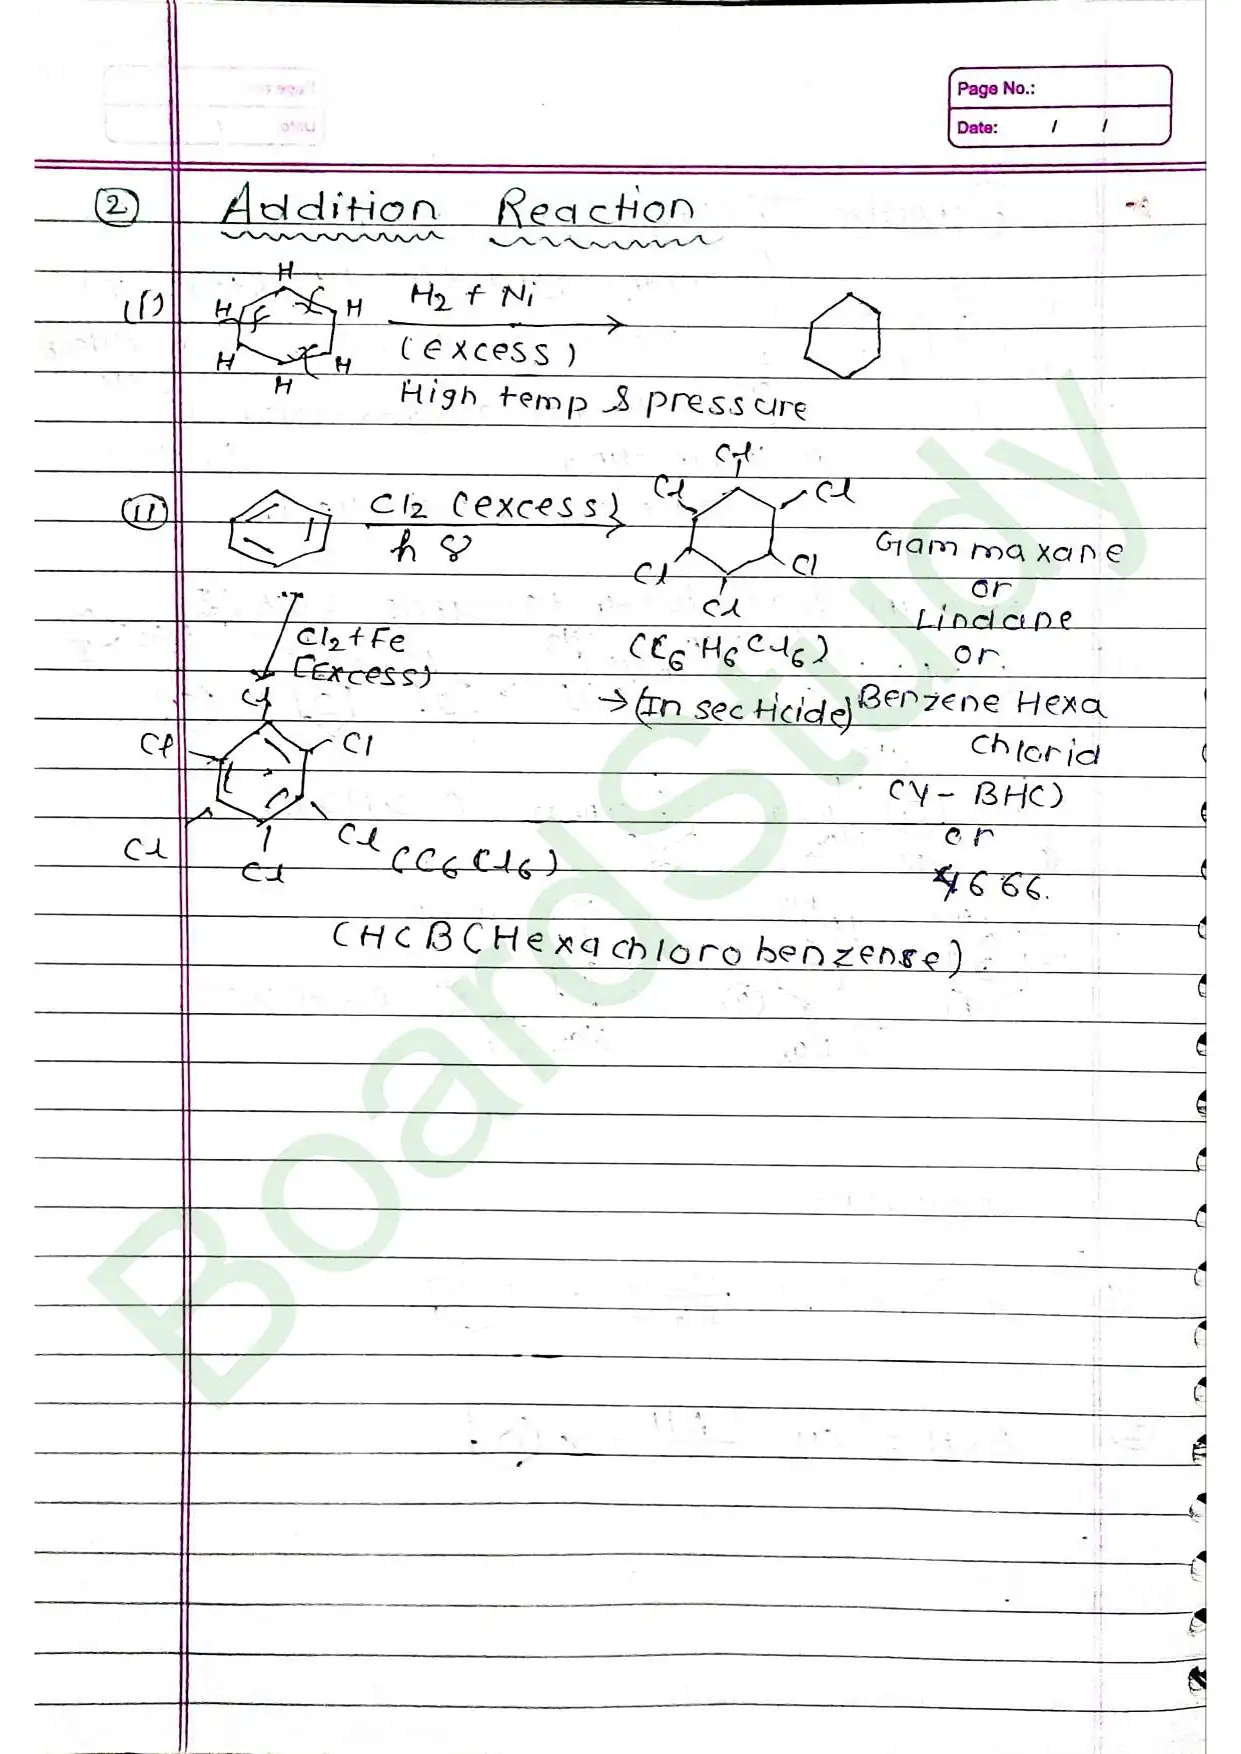 Page No.:
Date: / /
② Addition Reaction
(i) H H H H H H H2 + Ni
(excess)
High temp & pressure
(ii) Cl2 (excess)
h γ
Cl Cl Cl Cl Cl Cl
(C6 H6 Cl6)
→ (Insecticide)
Gammaxane
or
Lindane
or
Benzene Hexa
chlorid
(γ - BHC)
or
666.
Cl2 + Fe
(Excess)
Cl Cl Cl Cl Cl Cl
(C6 Cl6)
(HCB (Hexachlorobenzense)
BoardStudy